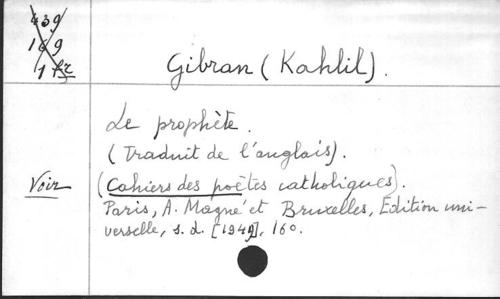 439
169
Gibran (Kahlil).
Le prophète.
(Traduit de l'anglais).
Voir (Cahiers des poètes catholiques).
Paris, A. Magné et Bruxelles, Édition uni-
verselle, s. d. [1949], 160.